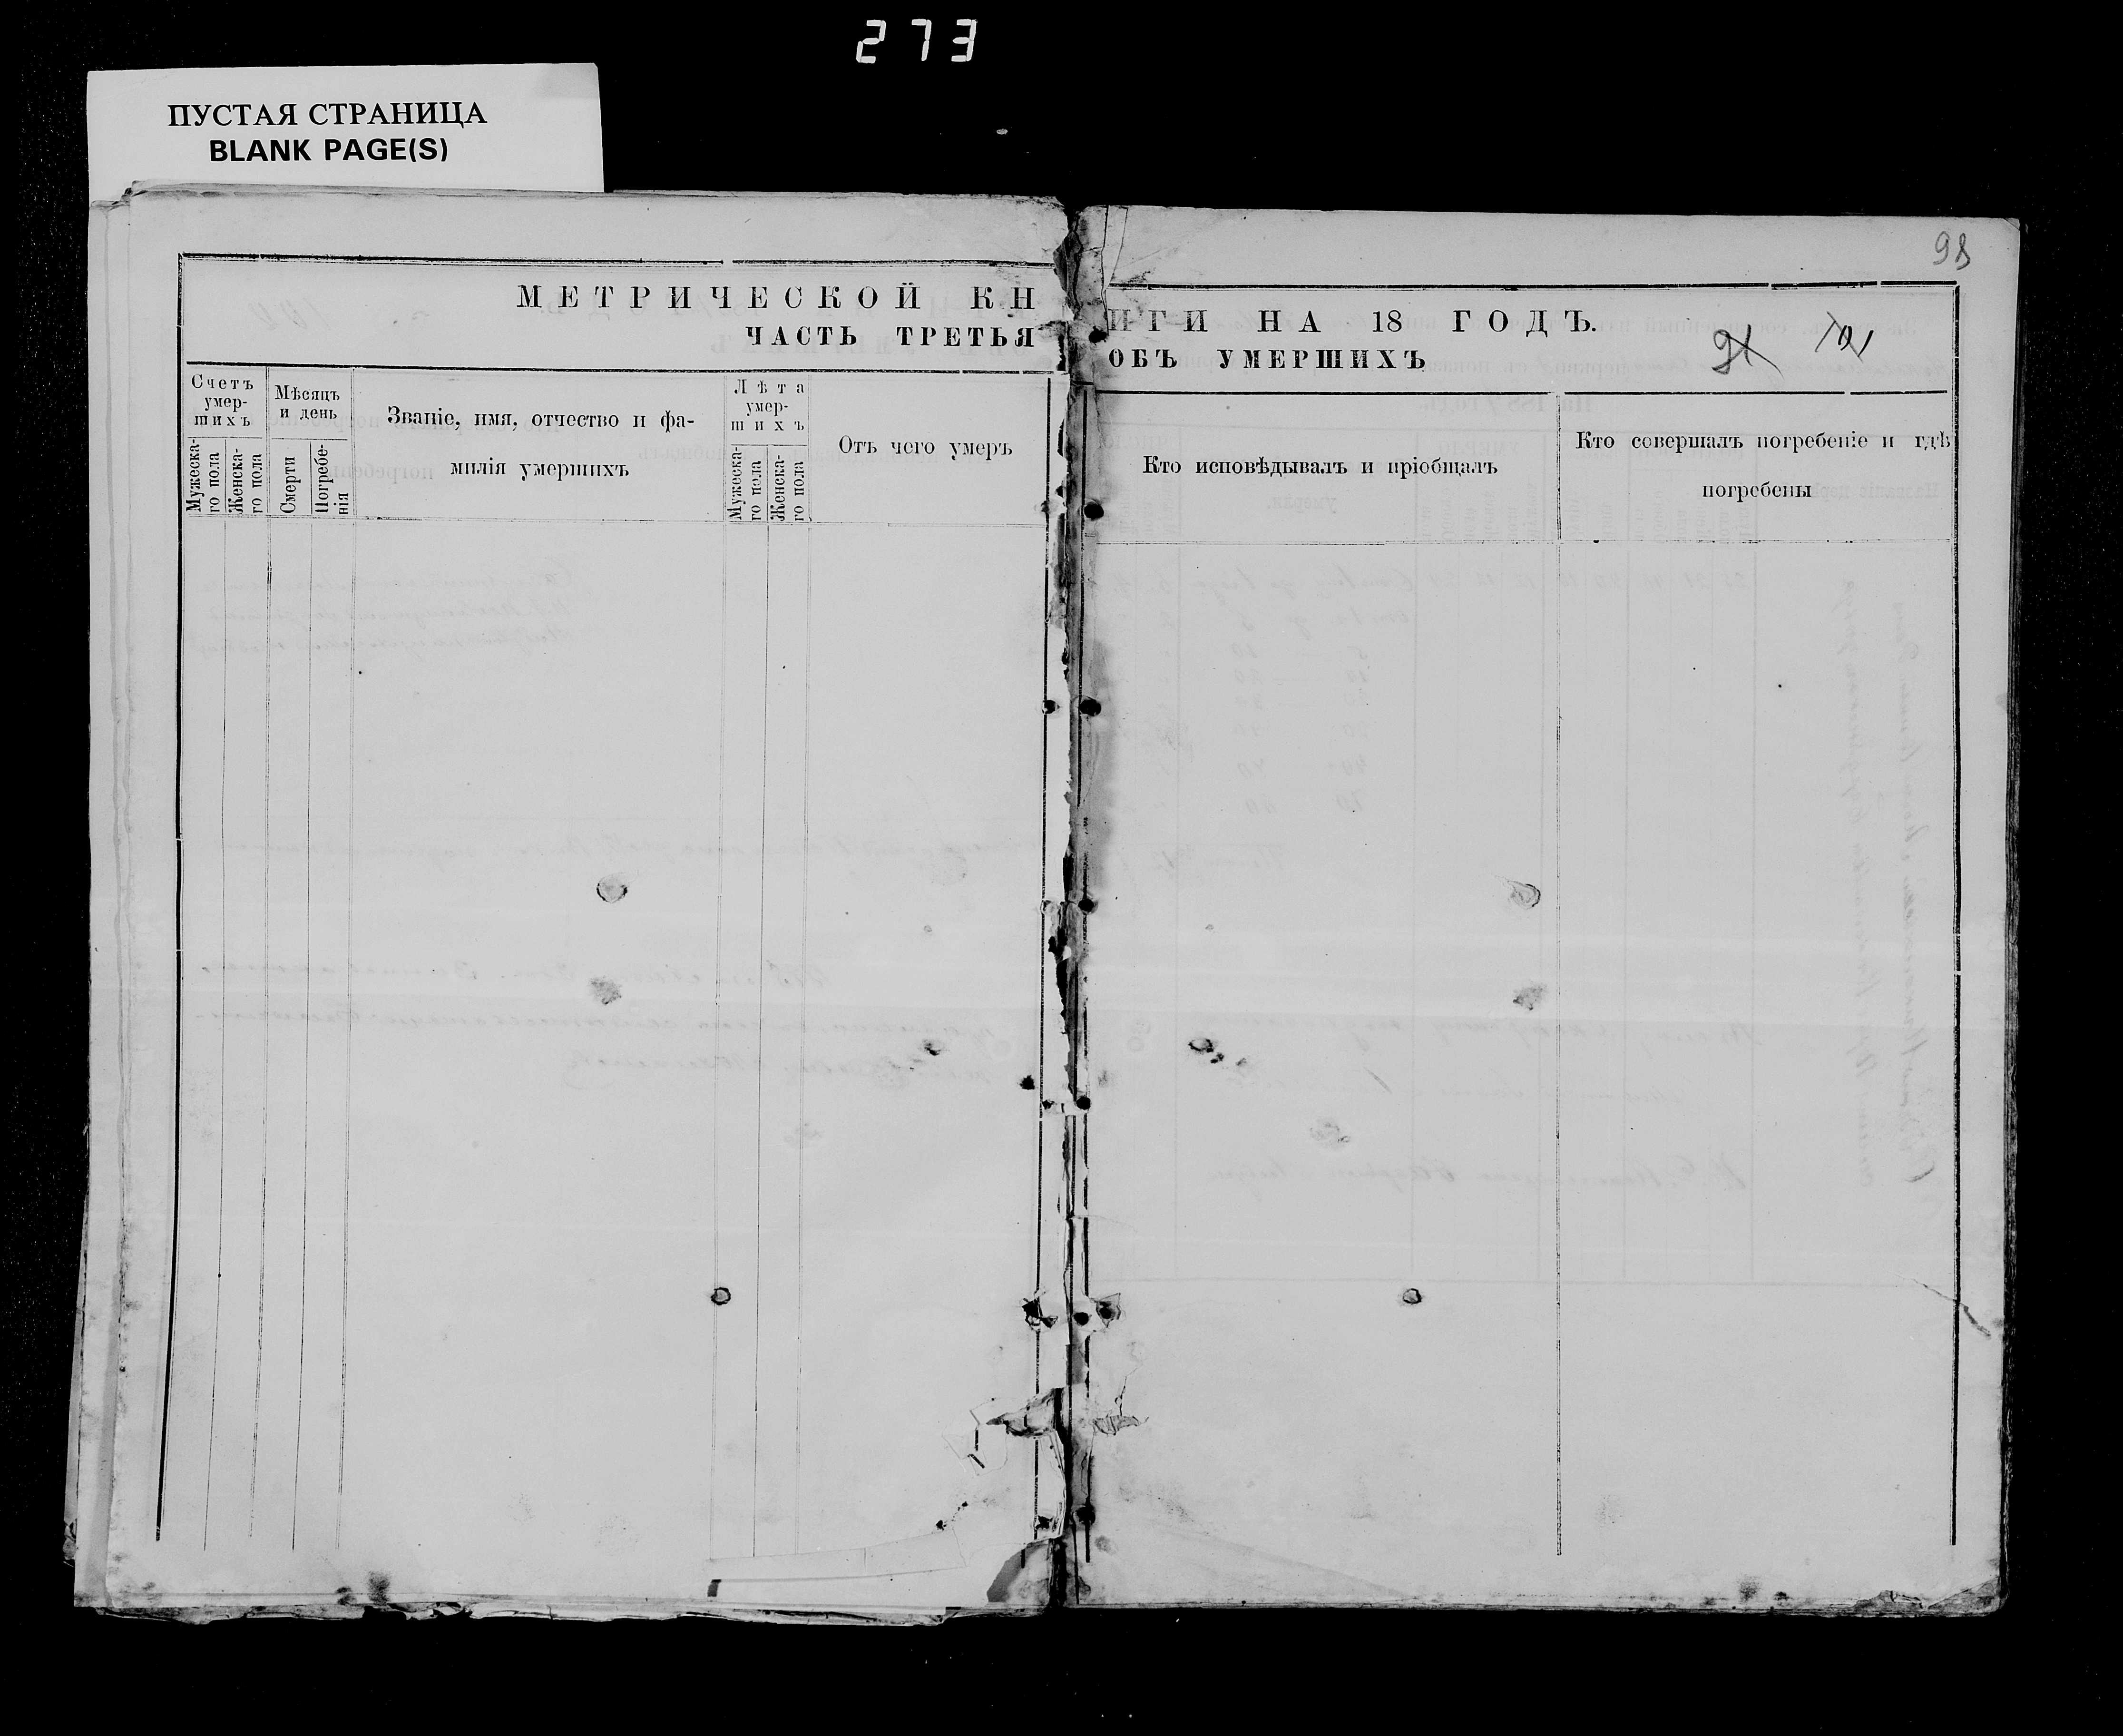 273
ПУСТАЯ СТРАНИЦА
BLANK PAGE(S)
98
МЕТРИЧЕСКОЙ КН
ЧАСТЬ ТРЕТЬЯ
ИГИ НА 18 ГОДЪ.
ОБЪ УМЕРШИХЪ
91 101
Счетъ
умер-
шихъ
Мужеска-
го пола
Женска-
го пола
Мѣсяцъ
и день
Смерти
Погребе-
нія
Званіе, имя, отчество и фа-
милія умершихъ
Лѣта
умер-
шихъ
Мужеска-
го пола
Женска-
го пола
Отъ чего умеръ
Кто исповѣдывалъ и пріобщалъ
Кто совершалъ погребеніе и гдѣ
погребены